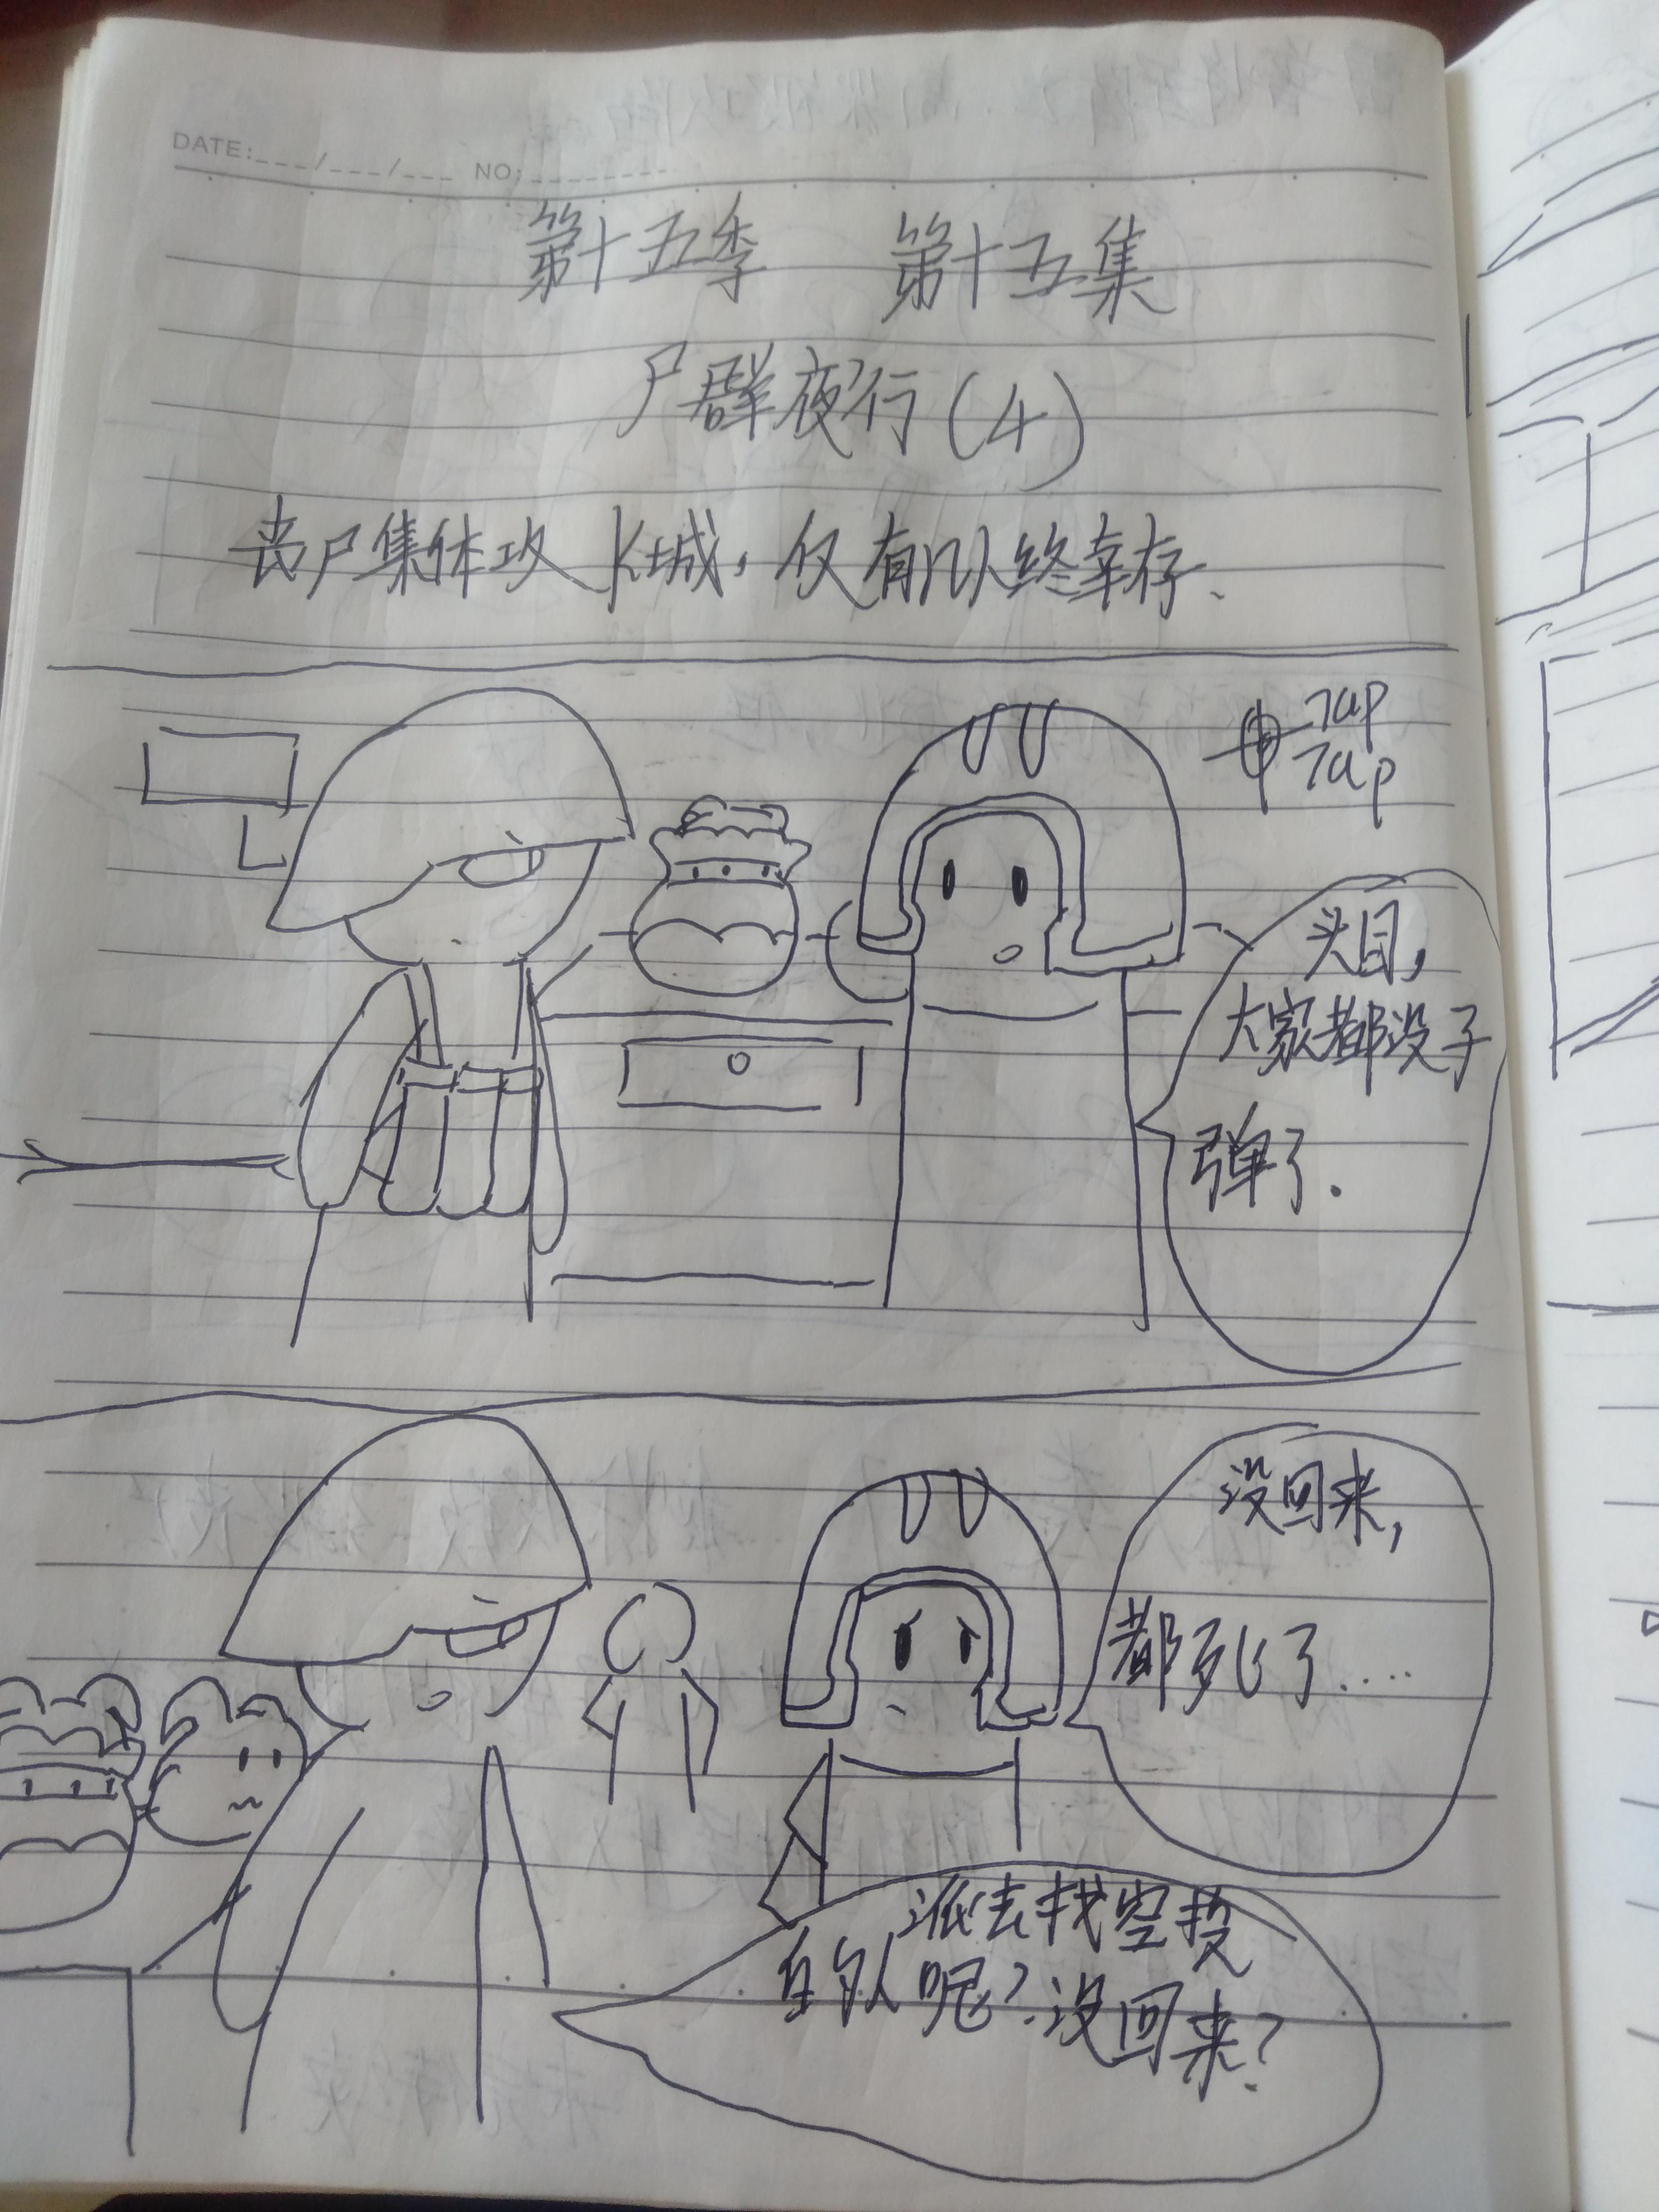 DATE:___/___/___ NO:________
第十五季 第十五集
尸群夜行(4)
丧尸集体攻长城，仅有几人终幸存.
Tap
Tap
头目，
大家都没子
弹了.
没回来，
都死了....
派去找空投
的人呢?没回来?